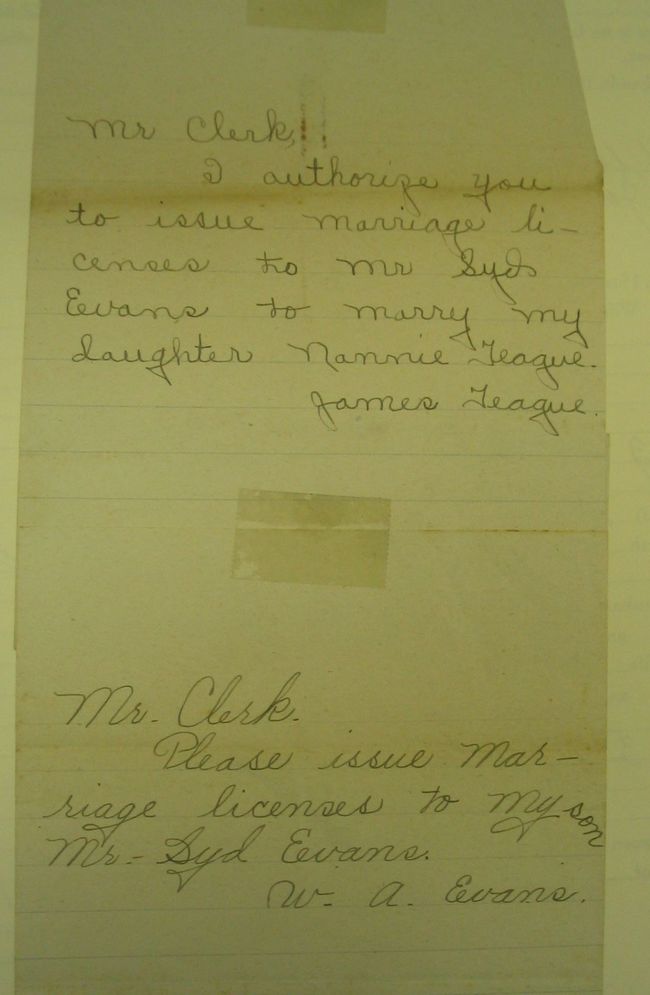 Mr Clerk,
I authorize you
to issue marriage li-
censes to Mr Syd
Evans to marry my
daughter Nannie Teague.
James Teague.
Mr. Clerk.
Please issue Mar-
riage licenses to my son
Mr. Syd Evans.
W. A. Evans.